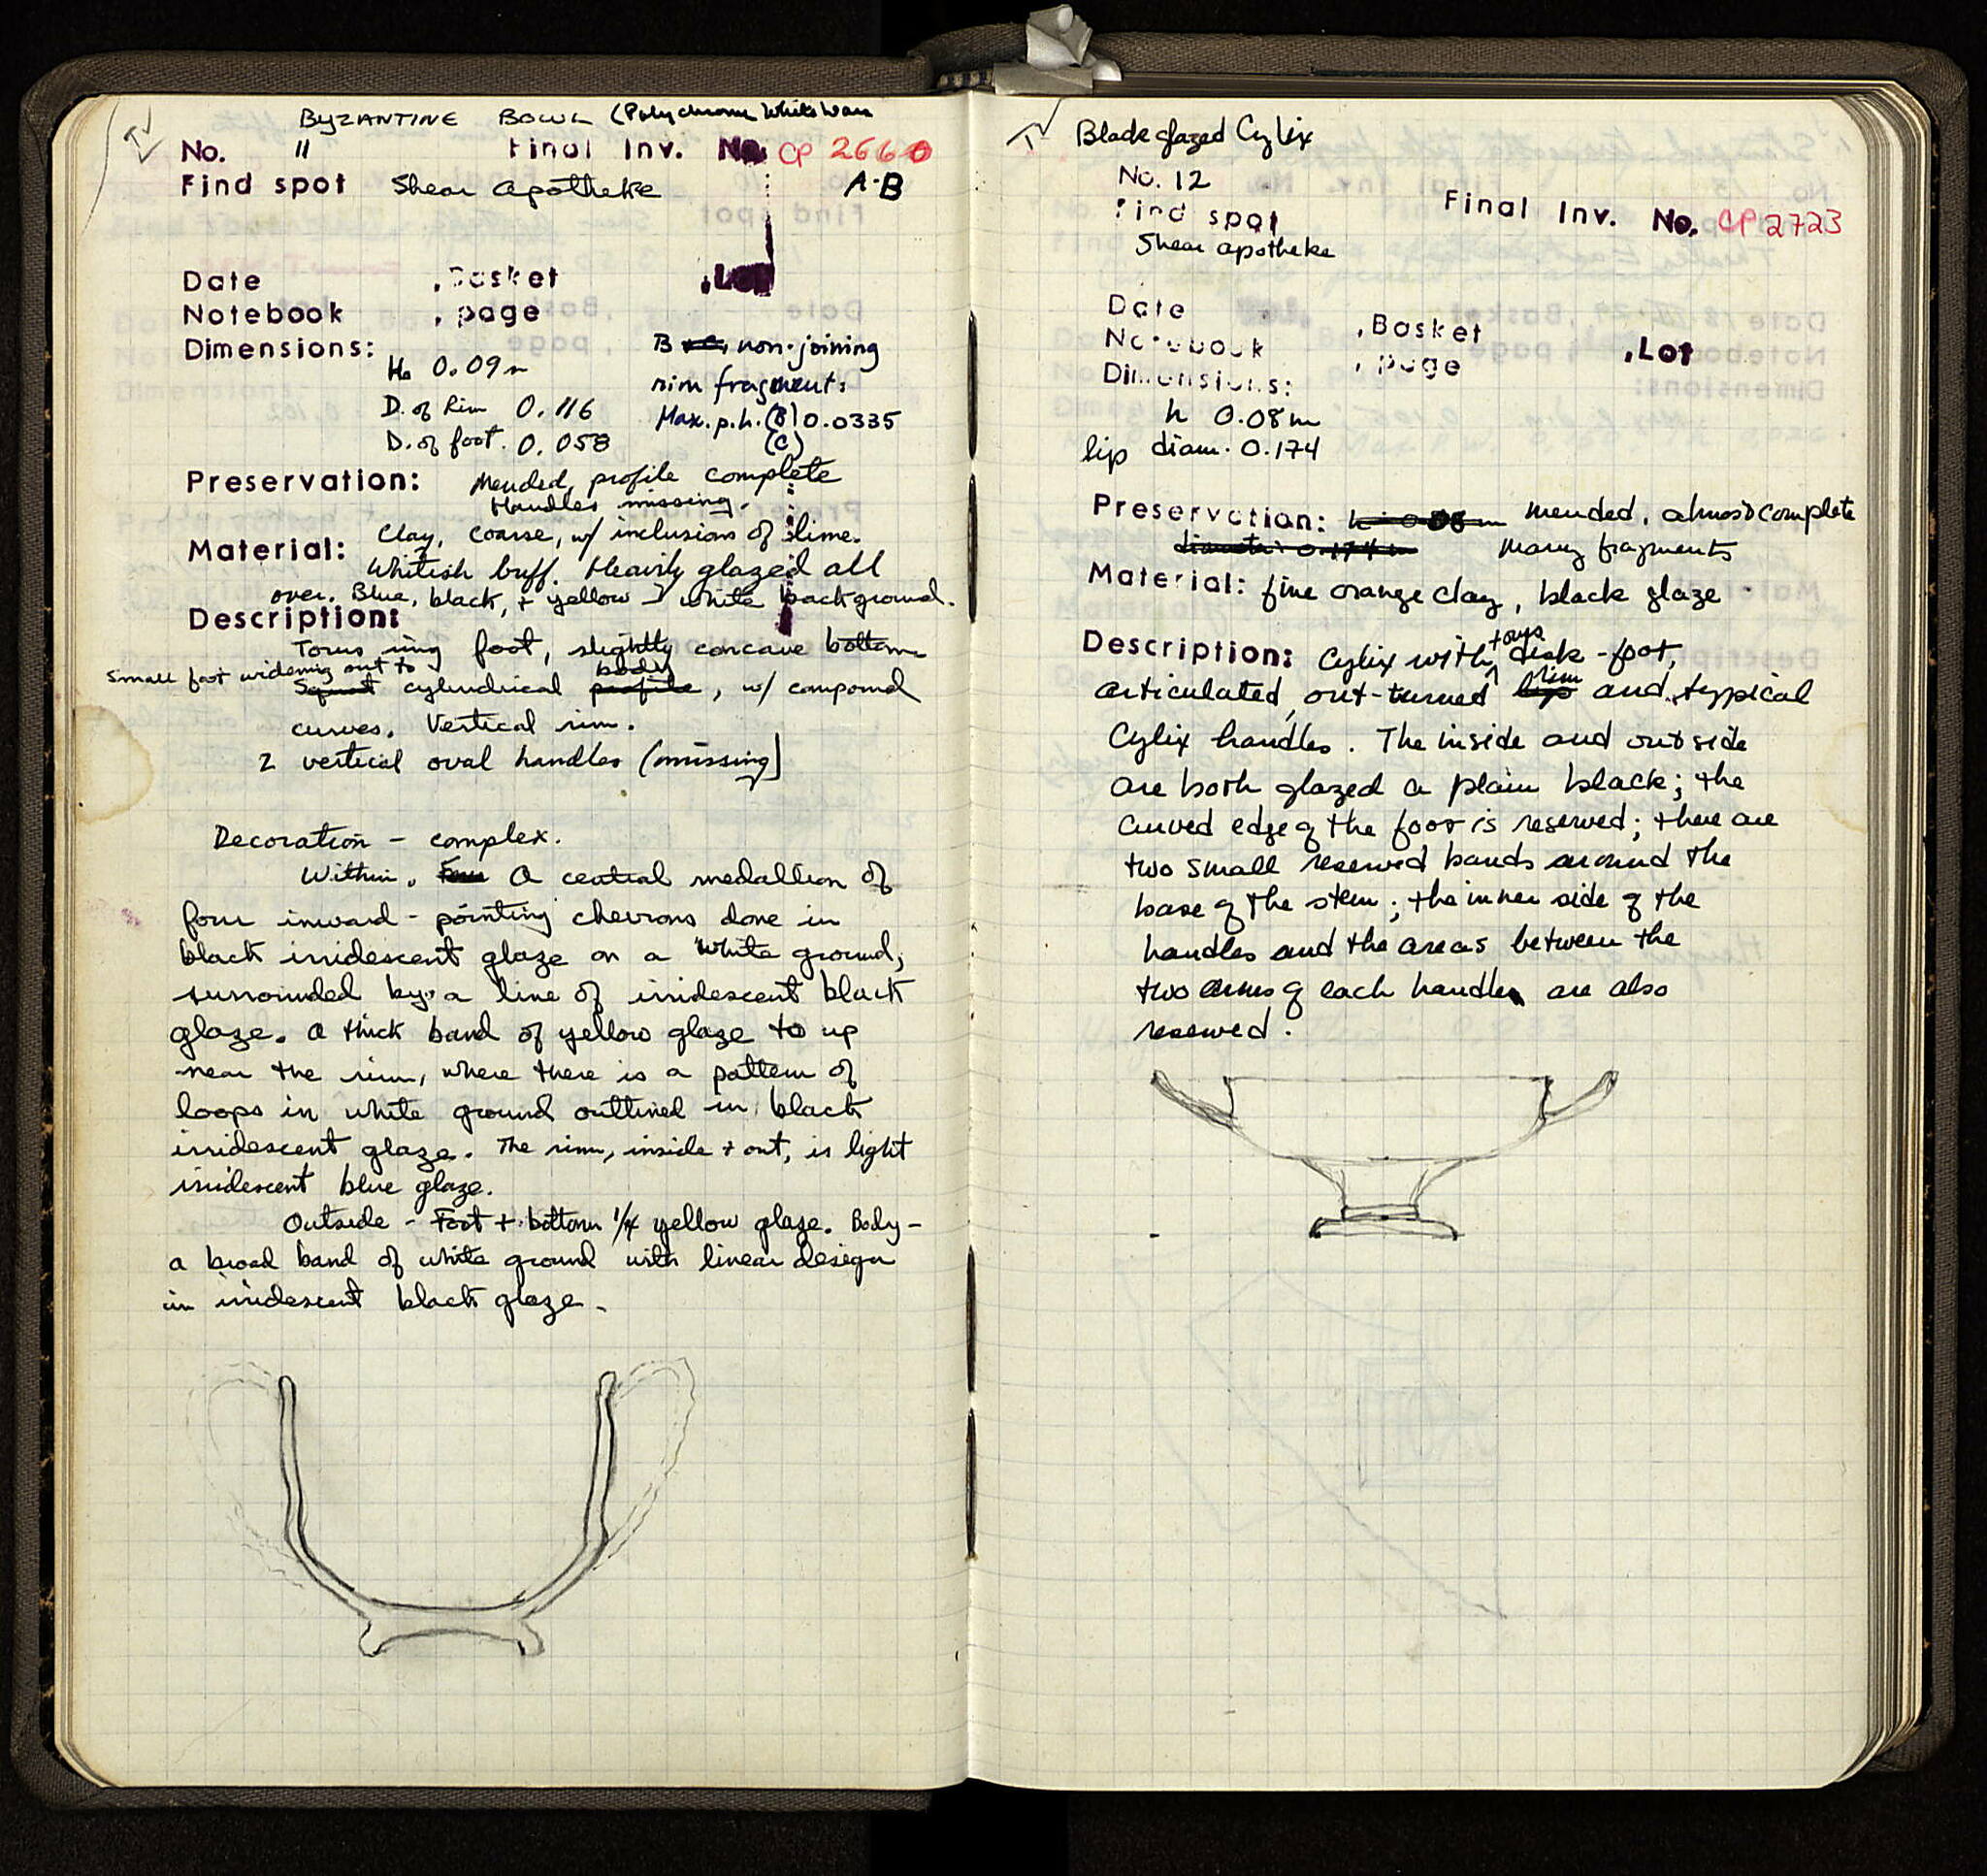 BYZANTINE BOWL (Polychrome White Ware
No. 11 Final Inv. No. CP 2660
Find spot Shear Apotheke A-B
Date , Basket , Lot
Notebook , page
Dimensions:
H. 0.09m
D. of Rim 0.116
D. of foot. 0.058
B + C, non-joining
rim fragments
Max. p.h. (B) 0.0335
(C)
Preservation: Mended, profile complete
Handles missing.
Material: Clay, coarse, w/ inclusions of lime.
Whitish buff. Heavily glazed all
over. Blue, black, + yellow white background.
Description:
Torus ring foot, slightly concave bottom
Small foot widening out to
Squat cylindrical profile body, w/ compound
curves. Vertical rim.
2 vertical oval handles (missing)
Decoration - complex.
Within. Four A central medallion of
four inward-pointing chevrons done in
black irridescent glaze on a white ground,
surrounded by a line of irridescent black
glaze. A thick band of yellow glaze to up
near the rim, where there is a pattern of
loops in white ground outlined in black
irridescent glaze. The rim, inside + out, is light
iridescent blue glaze.
Outside - Foot + bottom 1/4 yellow glaze. Body -
a broad band of white ground with linear design
in iridescent black glaze.
Black glazed Cylix
No. 12
Find spot Final Inv. No. CP 2723
Shear apotheke
Date , Basket , Lot
Notebook , page
Dimensions:
h 0.08m
lip diam. 0.174
Preservation: h = 0.08 m mended, almost complete
diameter: 0.174 m many fragments
Material: fine orange clay, black glaze
Description: Cylix with torus disk-foot,
articulated, out-turned lip rim and typical
Cylix handles. The inside and outside
are both glazed a plain black; the
curved edge of the foot is reserved; there are
two small reserved bands around the
base of the stem; the inner side of the
handles and the areas between the
two arms of each handle are also
reserved.